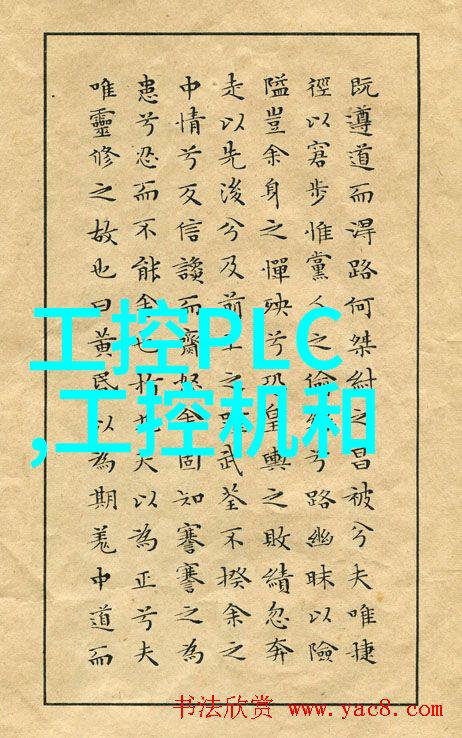 既遵道而淂路何桀紂之昌被兮夫唯捷
徑以窘步惟黨人之偷兮路幽昧以險
隘豈余身之憚殃兮恐皇輿之敗績忽奔
走以先後兮及前王之武荃不揆余之
中情兮反信讒而齌怒余固知謇謇之為
患兮忍而不能舍也指夫以為正兮夫
唯靈修之故也曰黃昬以為期羌中道而
工控PLC
,工控机和
书法欣赏 www.yac8.com